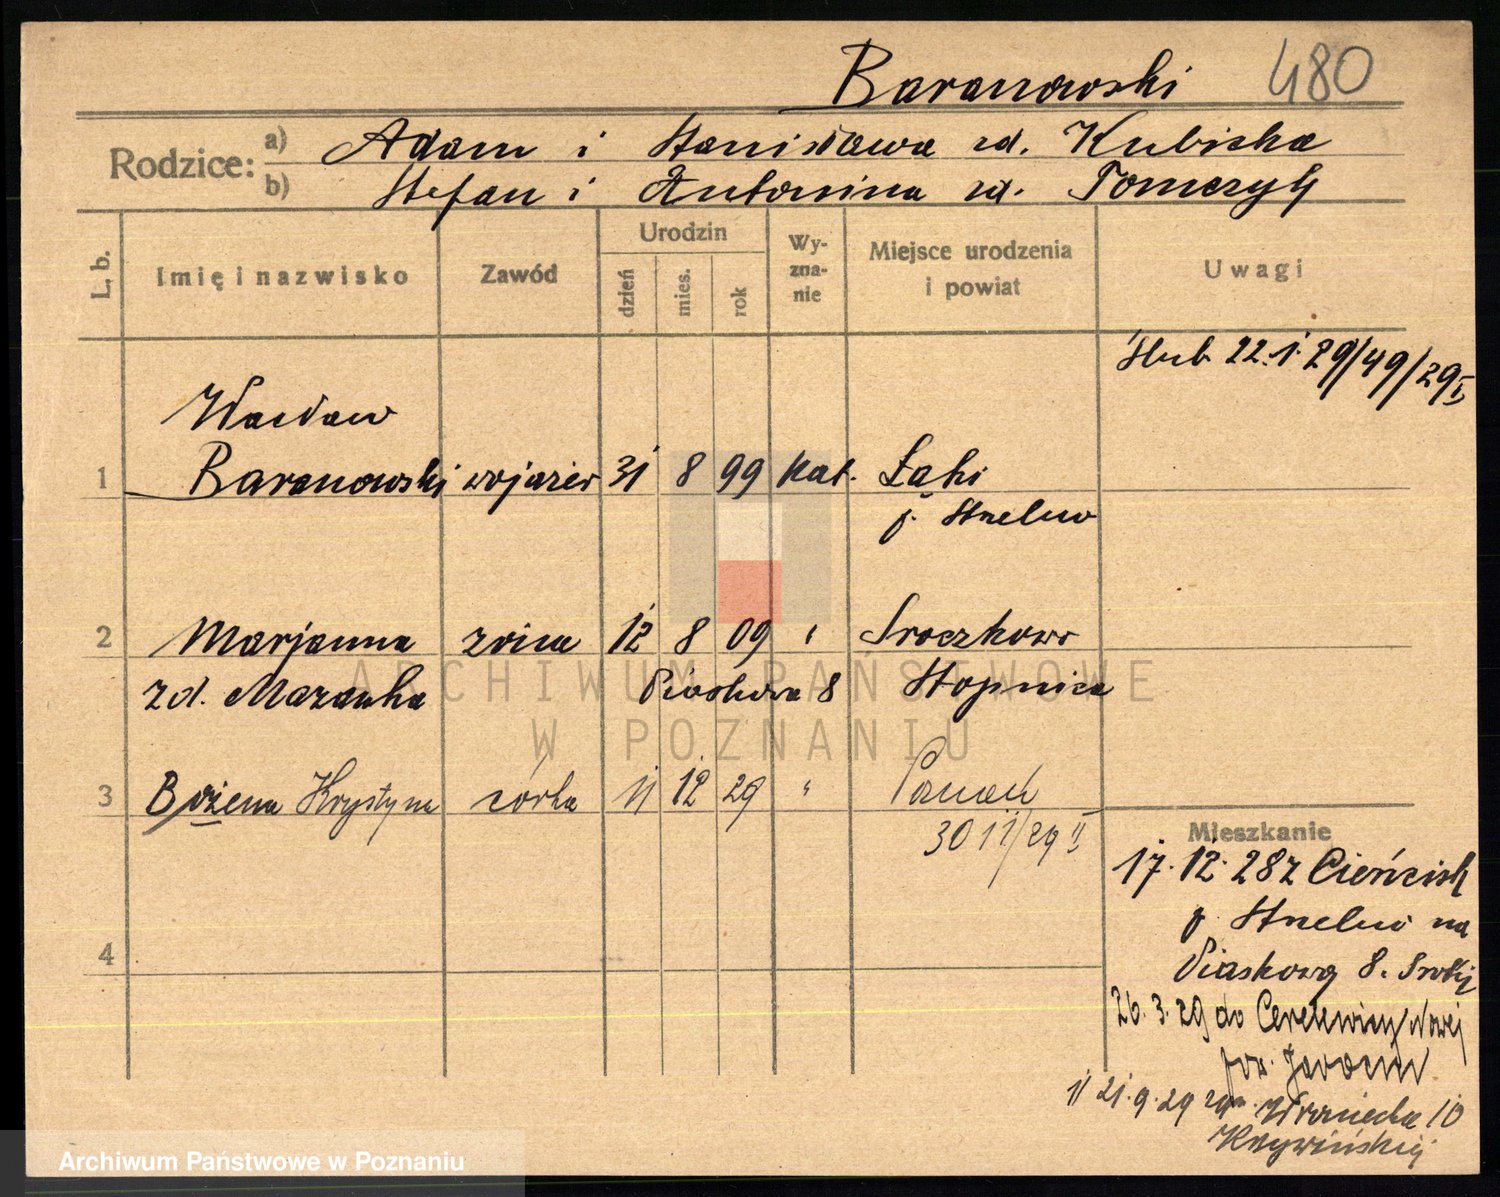 Baranowski 480
Rodzice:
a) Adam i Stanisława zd. Kubicka
b) Stefan i Antonina zd. Tomczyk
L. b. Imię i nazwisko Zawód Urodzin dzień mies. rok Wy-zna-nie Miejsce urodzenia i powiat Uwagi
ślub 22.1.29/49/29 I
Wacław
1 Baranowski wojażer 31 8 99 kat. Łąki
p. Strzelno
2 Marjanna żona 12 8 09 " Sroczkowo
zd. Mazanka Piaskowa 8 Stopnica
3 Bożena Krystyna córka 11 12 29 " Poznań
3011/29 II
4
Mieszkanie
17.12.28 z Cieńcisk
p. Strzelno na
Piaskową 8.
26.3.29 do Cerekwicy Nowej
pow. Jarocin
11 21.9.29 Wroniecka 10
ARCHIWUM PAŃSTWOWE
W POZNANIU
Archiwum Państwowe w Poznaniu